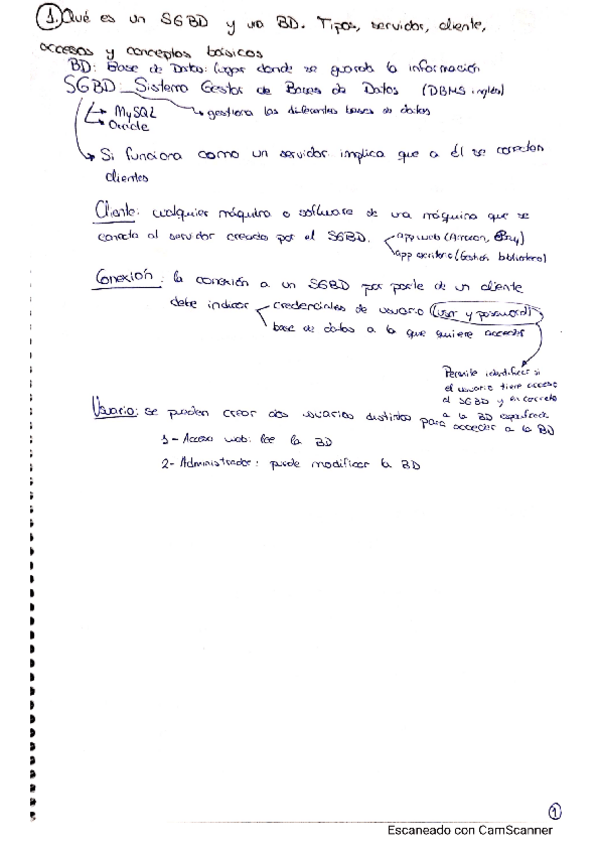 1. Qué es un SGBD y una BD. Tipos, servidor, cliente,
accesos y conceptos básicos
BD: Base de Datos: lugar donde se guarda la información
SGBD: Sistema Gestor de Bases de Datos (DBMS inglés)
MySQL
gestiona las diferentes bases de datos
Oracle
Si funciona como un servidor implica que a él se conectan
clientes
Cliente: cualquier máquina o software de una máquina que se
conecta al servidor creado por el SGBD.
app web (Amazon,
app escritorio (Gestión biblioteca)
Conexión: la conexión a un SGBD por parte de un cliente
debe indicar
credenciales de usuario (user y password)
base de datos a la que quiere acceder
Permite identificar si
el usuario tiene acceso
al SGBD y en concreto
a la BD específica
Usuario: se pueden crear dos usuarios distintos para acceder a la BD
1- Acceso web: lee la BD
2- Administrador: puede modificar la BD
1
Escaneado con CamScanner